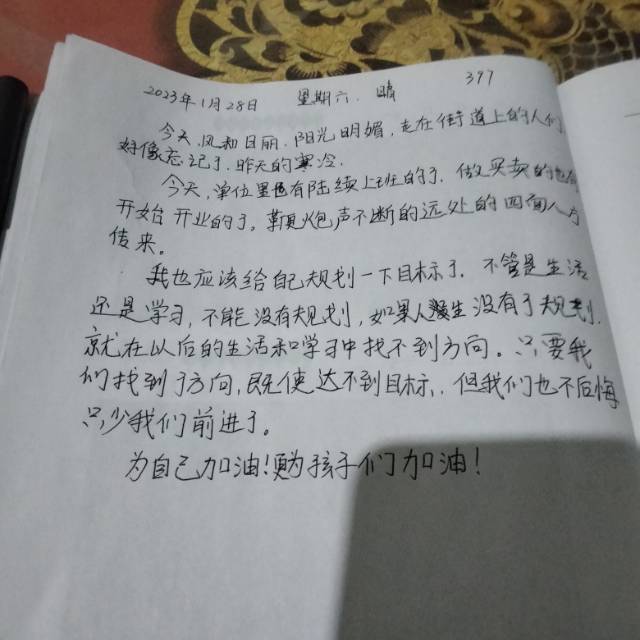 2023年1月28日 星期六. 晴 397
今天,风和日丽.阳光明媚,走在街道上的人们,
好像忘记了.昨天的寒冷.
今天,单位里也有陆续上班的了.做买卖的也有
开始开业的了,鞭炮声不断的远处的四面八方
传来。
我也应该给自己规划一下目标了.不管是生活
还是学习,不能没有规划,如果人生没有了规划.
就在以后的生活和学习中找不到方向。只要我
们找到了方向,既使达不到目标,.但我们也不后悔
只少我们前进了。
为自己加油!为孩子们加油!